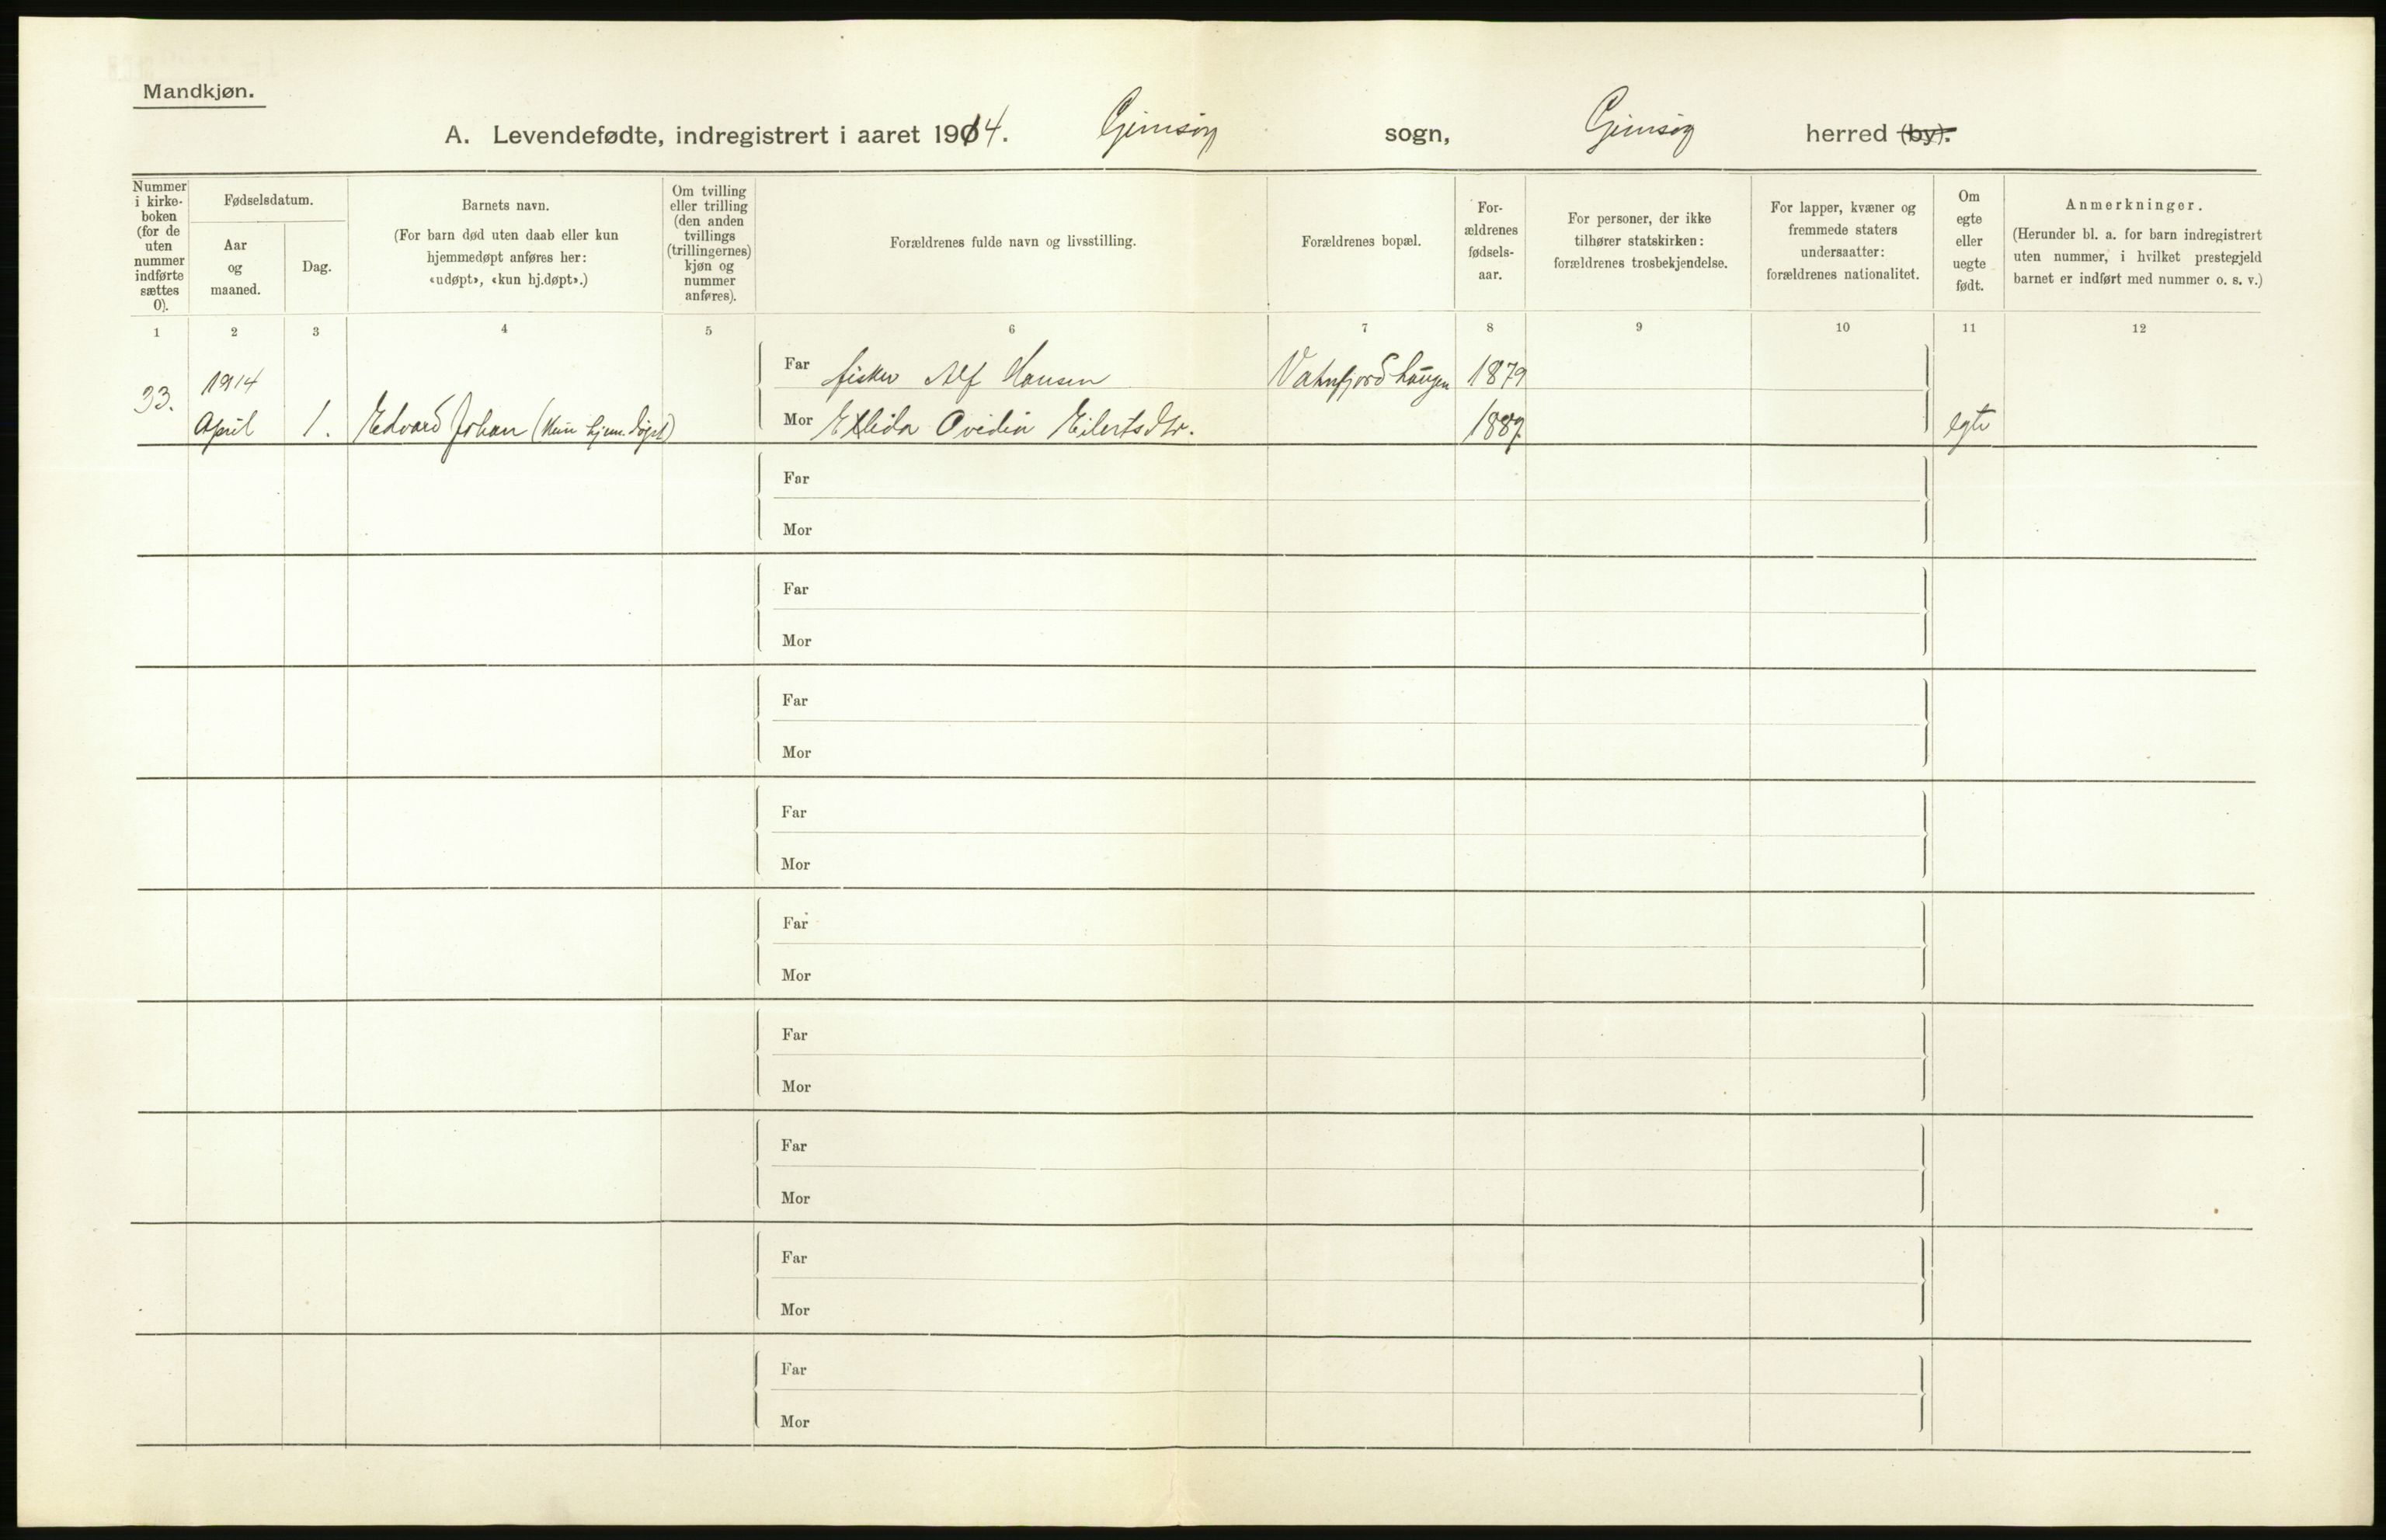 Mandkjøn.
A. Levendefødte, indregistrert i aaret 1914. Gimsøy sogn, Gimsøy herred (by).
Nummer i kirke-boken (for de uten nummer indførte sættes 0).
Fødselsdatum.
Aar og maaned.
Dag.
Barnets navn.
(For barn død uten daab eller kun hjemmedøpt anføres her: «udøpt», «kun hj.døpt».)
Om tvilling eller trilling (den anden tvillings (trillingernes) kjøn og nummer anføres).
Forældrenes fulde navn og livsstilling.
Forældrenes bopæl.
For-ældrenes fødsels-aar.
For personer, der ikke tilhører statskirken: forældrenes trosbekjendelse.
For lapper, kvæner og fremmede staters undersaatter: forældrenes nationalitet.
Om egte eller uegte født.
Anmerkninger.
(Herunder bl. a. for barn indregistrert uten nummer, i hvilket prestegjeld barnet er indført med nummer o. s. v.)
1 2 3 4 5 6 7 8 9 10 11 12
33. 1914 April 1. Edvard Johan (kun hjem.døpt)
Far fisker Alf Hansen Vatnfjordhaugen 1879
Mor Ellida Ovidia Eilertsdtr. 1887 egte
Far
Mor
Far
Mor
Far
Mor
Far
Mor
Far
Mor
Far
Mor
Far
Mor
Far
Mor
Far
Mor